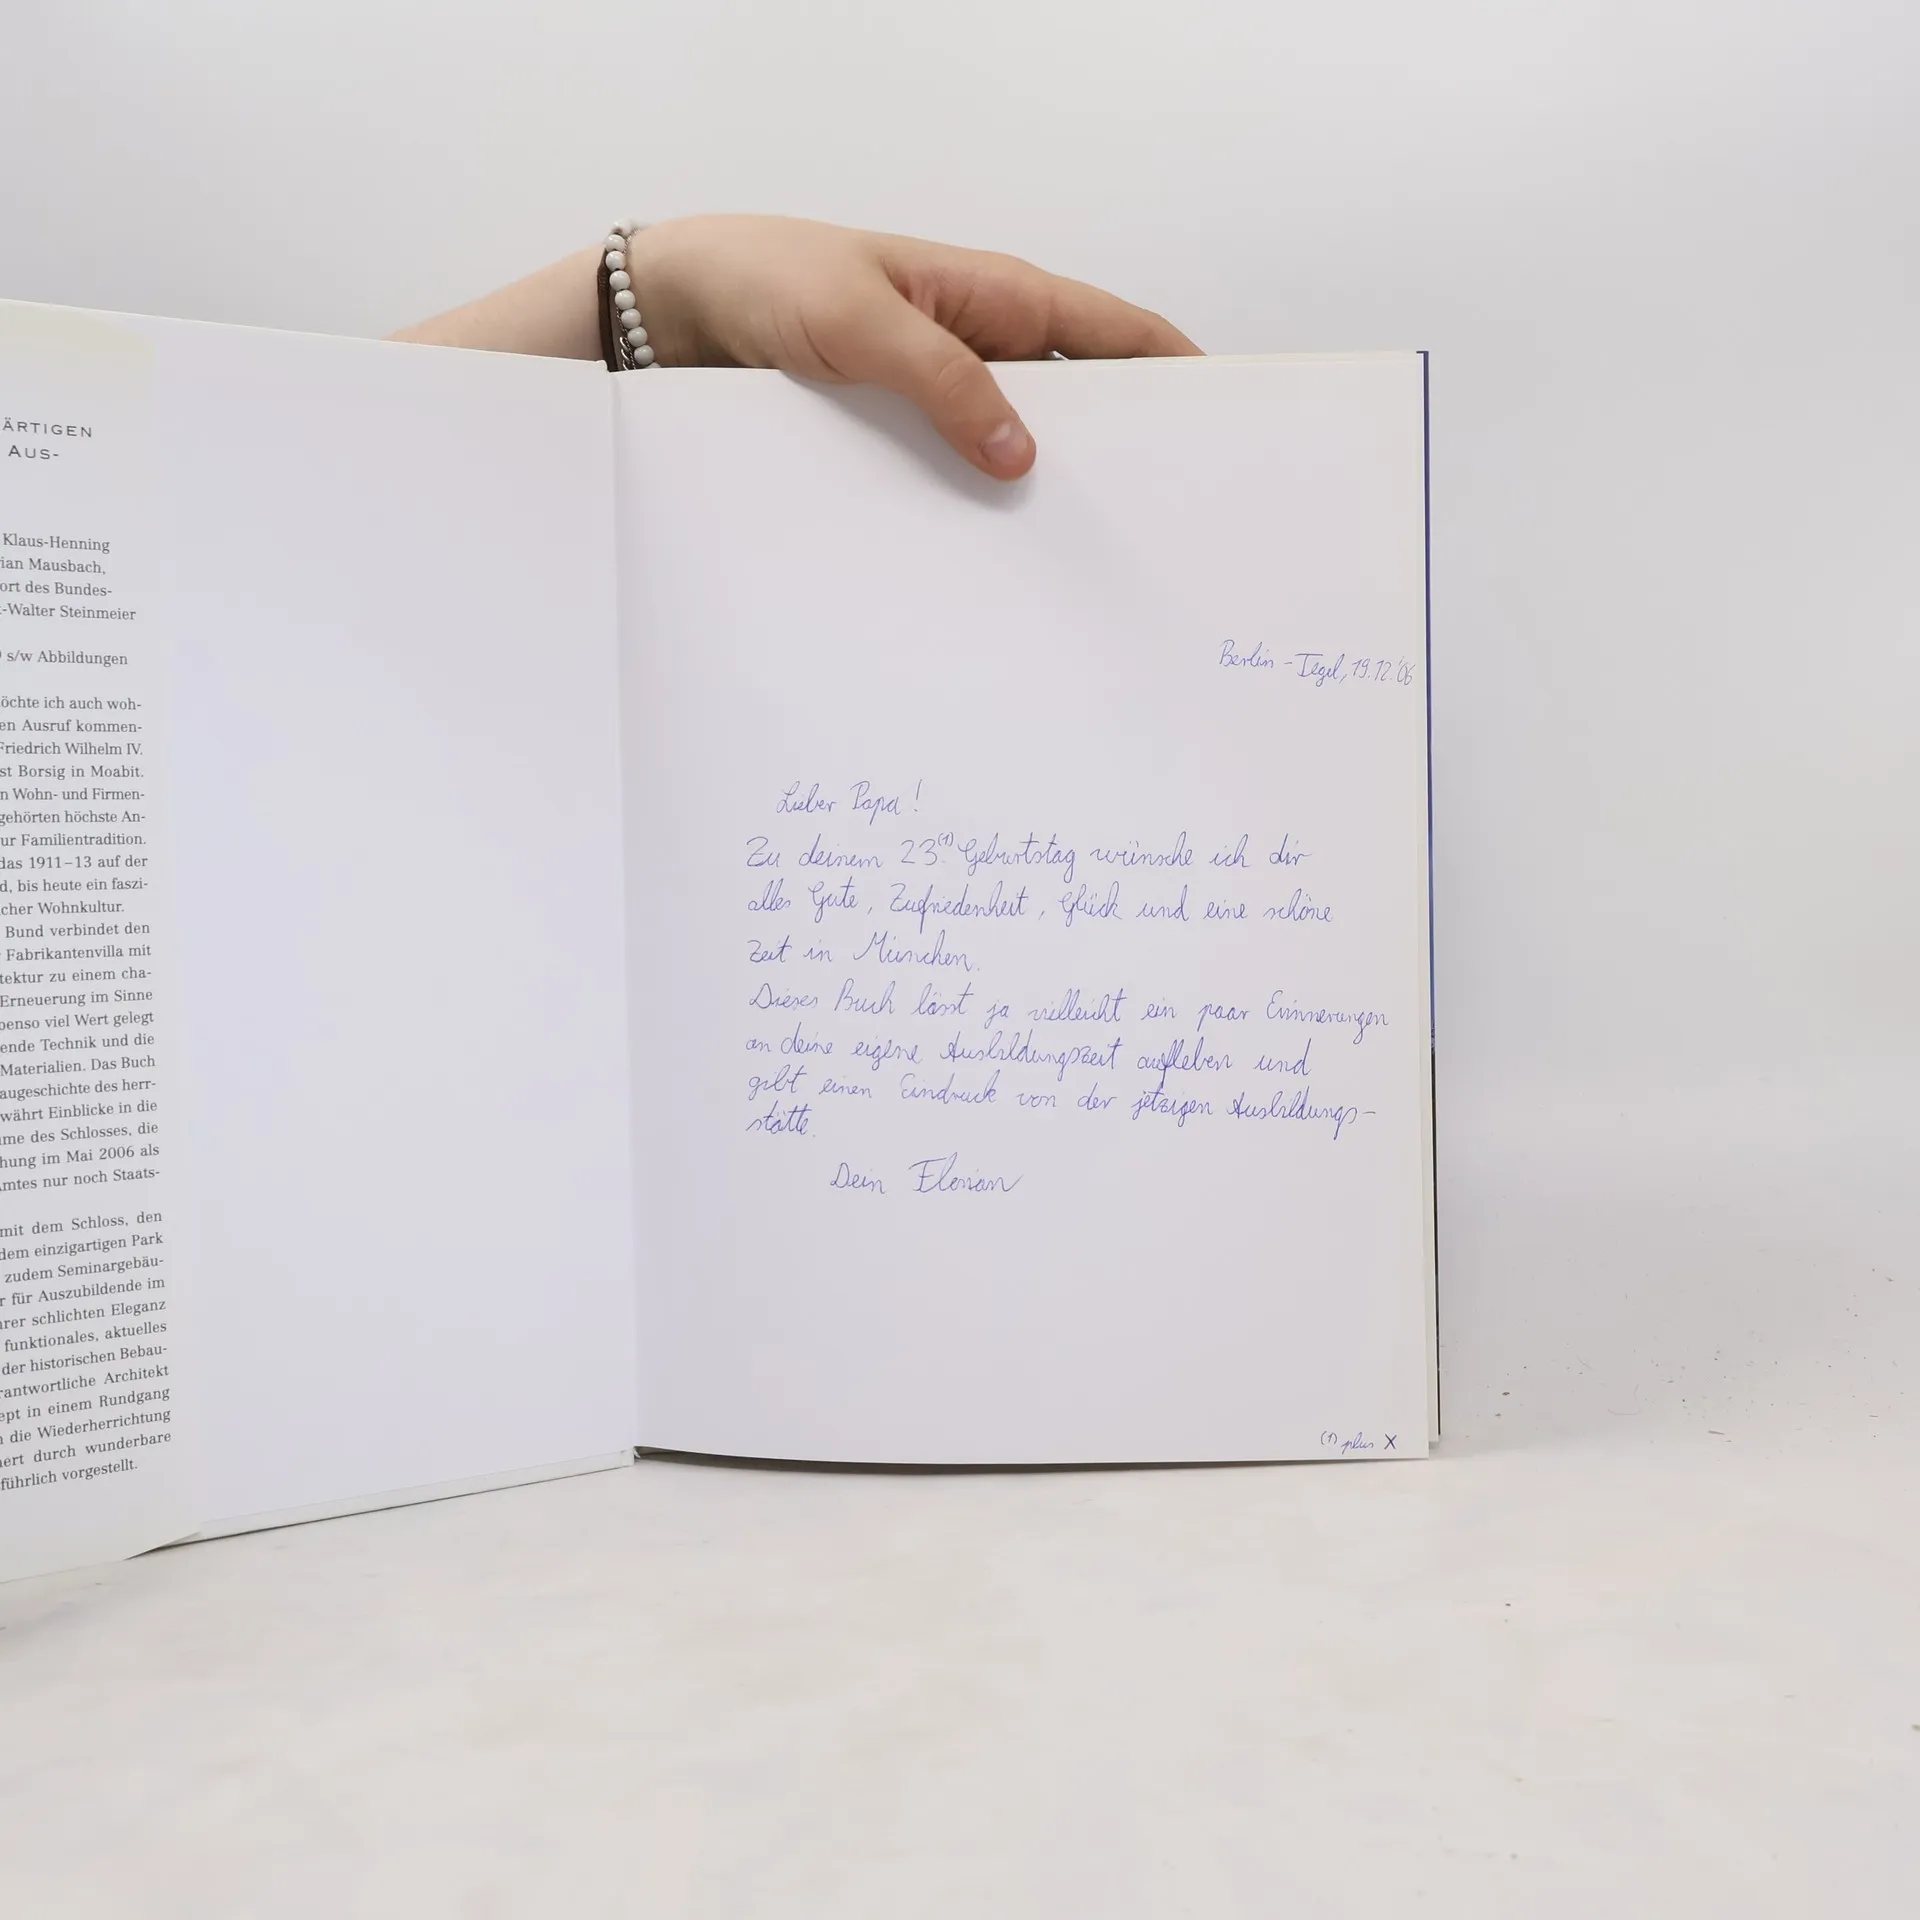 ÄRTIGEN
AUS-
Klaus-Henning
ian Mausbach,
ort des Bundes-
-Walter Steinmeier
s/w Abbildungen
öchte ich auch woh-
en Ausruf kommen-
Friedrich Wilhelm IV.
st Borsig in Moabit.
n Wohn- und Firmen-
gehörten höchste An-
ur Familientradition.
das 1911–13 auf der
d, bis heute ein faszi-
cher Wohnkultur.
Bund verbindet den
Fabrikantenvilla mit
tektur zu einem cha-
Erneuerung im Sinne
benso viel Wert gelegt
ende Technik und die
Materialien. Das Buch
augeschichte des herr-
währt Einblicke in die
me des Schlosses, die
hung im Mai 2006 als
Amtes nur noch Staats-
mit dem Schloss, den
dem einzigartigen Park
zudem Seminargebäu-
r für Auszubildende im
hrer schlichten Eleganz
funktionales, aktuelles
der historischen Bebau-
rantwortliche Architekt
ept in einem Rundgang
die Wiederherrichtung
ert durch wunderbare
führlich vorgestellt.
Berlin - Tegel, 19.12.'06
Lieber Papa!
Zu deinem 23.(1) Geburtstag wünsche ich dir
alles Gute, Zufriedenheit, Glück und eine schöne
Zeit in München.
Dieses Buch lässt ja vielleicht ein paar Erinnerungen
an deine eigene Ausbildungszeit aufleben und
gibt einen Eindruck von der jetzigen Ausbildungs-
stätte.
Dein Florian
(1) plus X